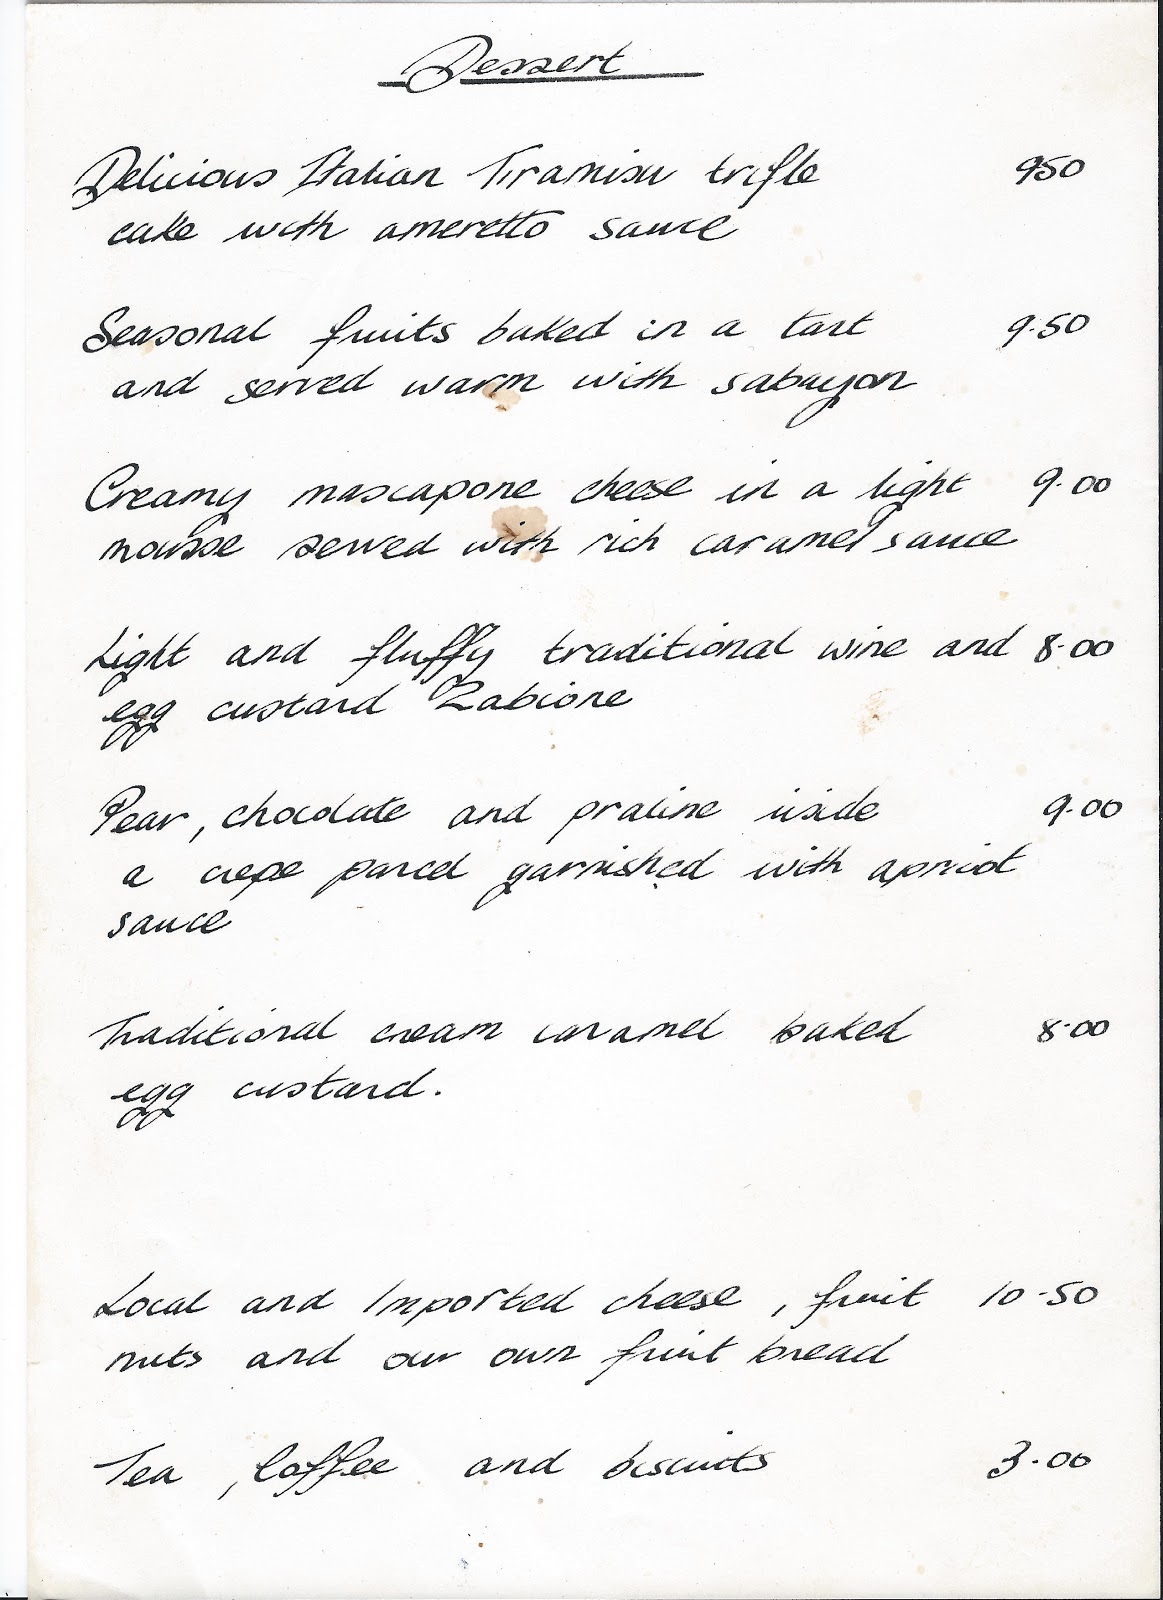 Dessert
Delicious Italian Tiramisu trifle 950
cake with ameretto sauce
Seasonal fruits baked in a tart 9.50
and served warm with sabayon
Creamy mascapone cheese in a light 9.00
mousse served with rich caramel sauce
Light and fluffy traditional wine and 8.00
egg custard Zabione
Pear, chocolate and praline inside 9.00
a crepe parcel garnished with apricot
sauce
Traditional cream caramel baked 8.00
egg custard.
Local and Imported cheese, fruit 10.50
nuts and our own fruit bread
Tea, Coffee and biscuits 3.00